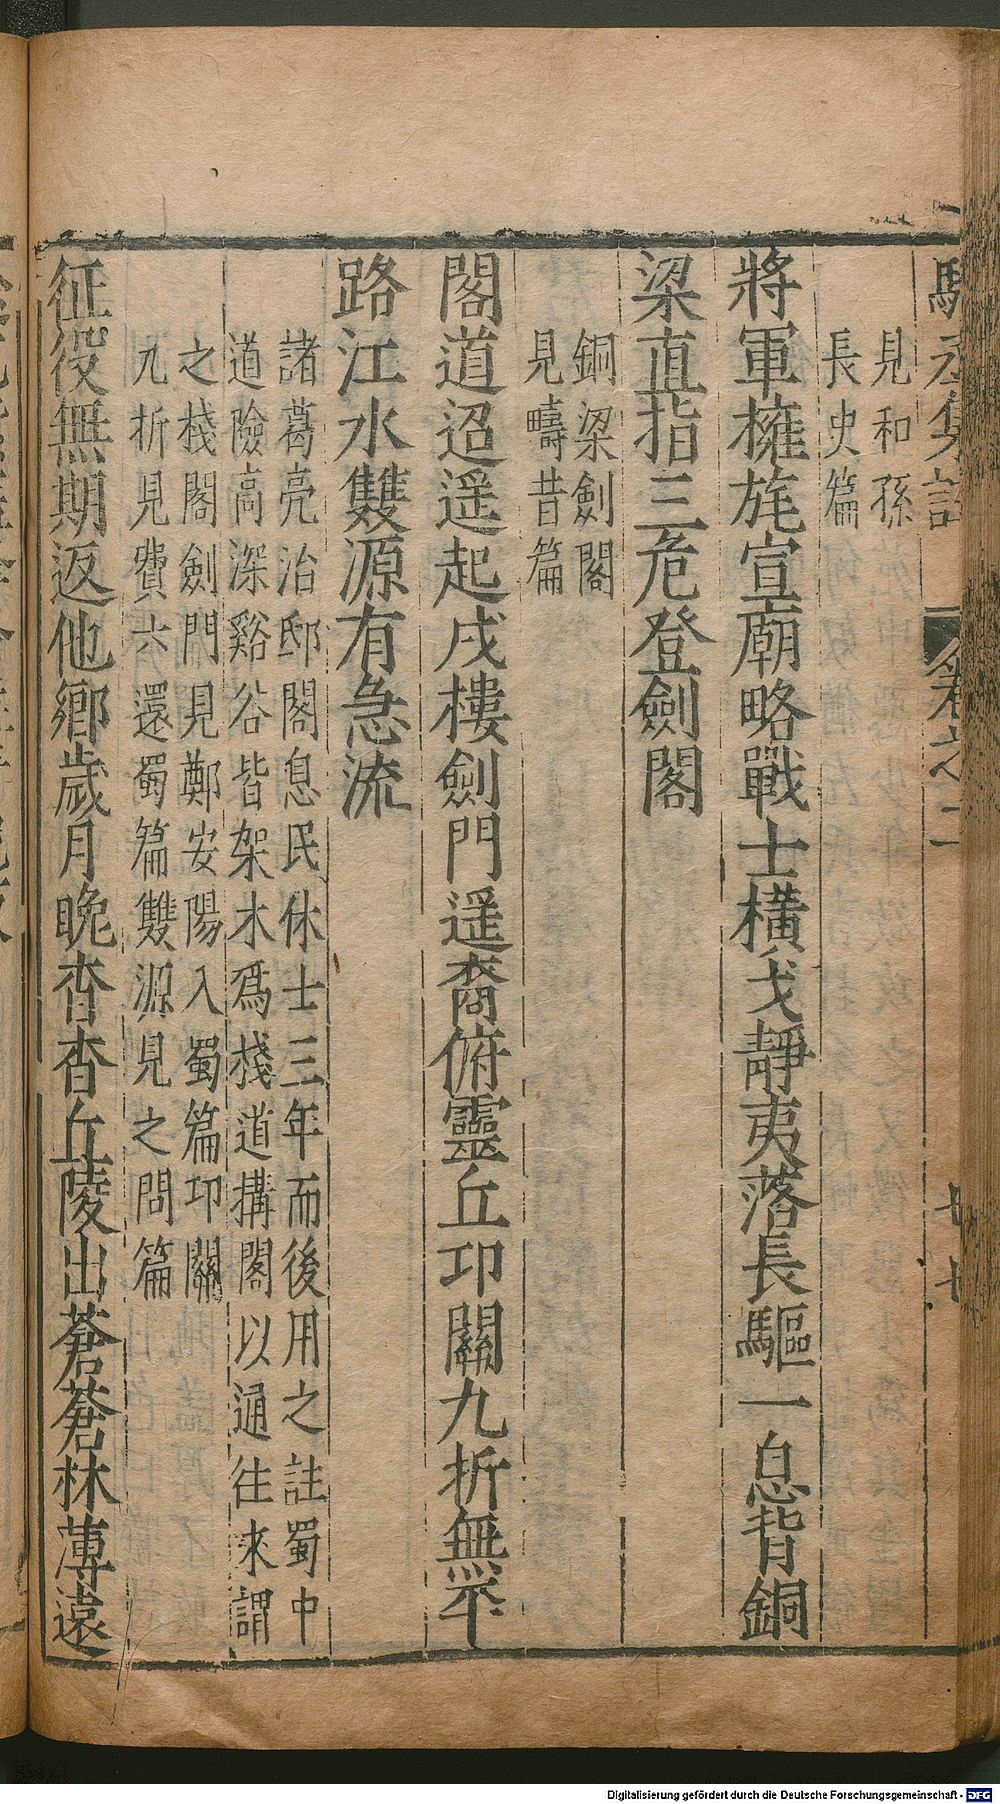 駱丞集註 卷之二 七七
見和孫
長史篇
將軍擁旄宣廟略戰士橫戈靜夷落長驅一息背銅
梁直指三危登劍閣
銅梁劍閣
見疇昔篇
閣道迢遥起戍樓劍門遥裔俯靈丘卭關九折無平
路江水雙源有急流
諸葛亮治邸閣息民休士三年而後用之註蜀中
道險高深谿谷皆架木爲棧道搆閣以通往來謂
之棧閣劍門見鄭安陽入蜀篇卭關
九折見費六還蜀篇雙源見之問篇
征役無期返他鄉歲月晚杳杳丘陵出蒼蒼林薄遠
Digitalisierung gefördert durch die Deutsche Forschungsgemeinschaft - DFG